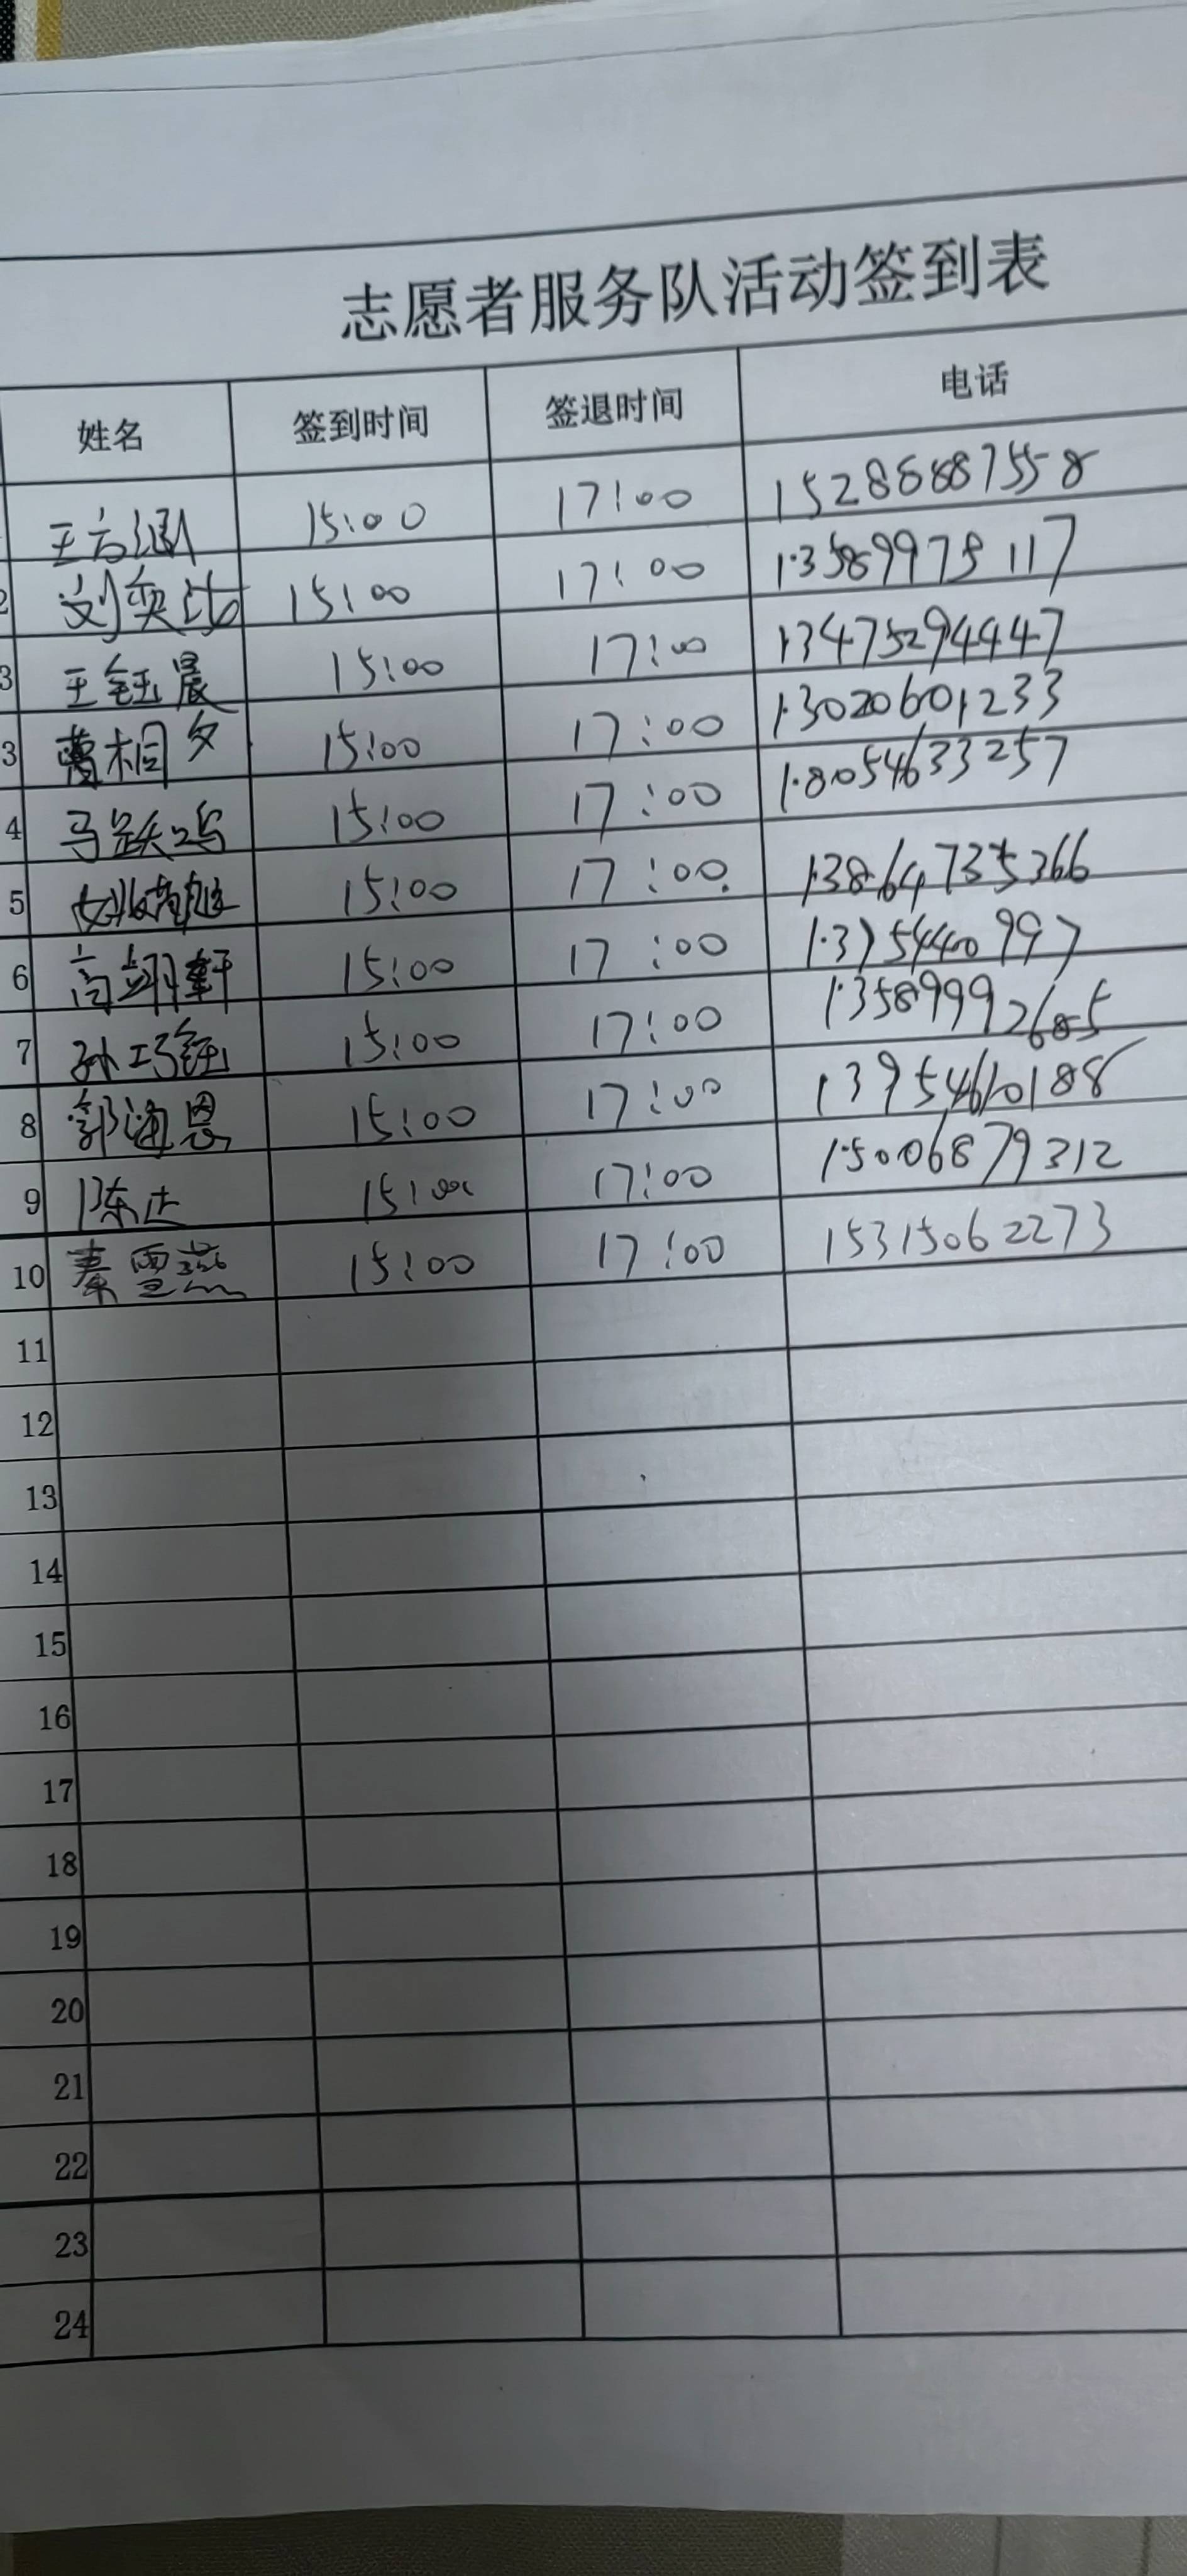 志愿者服务队活动签到表
姓名 签到时间 签退时间 电话
15:00 17:00 15286887558
2 刘奕 15:00 17:00 13589975117
3 王钰晨 15:00 17:00 13475294447
3 曹桐夕 15:00 17:00 13020601233
4 马跃鸣 15:00 17:00 18054633257
5 15:00 17:00 13864735366
6 高翊轩 15:00 17:00
7 孙巧钰 15:00 17:00 13589992685
8 郭海恩 15:00 17:00 13954610188
9 陈达 15:00 17:00 15006879312
10 秦雪燕 15:00 17:00 15315062273
11
12
13
14
15
16
17
18
19
20
21
22
23
24